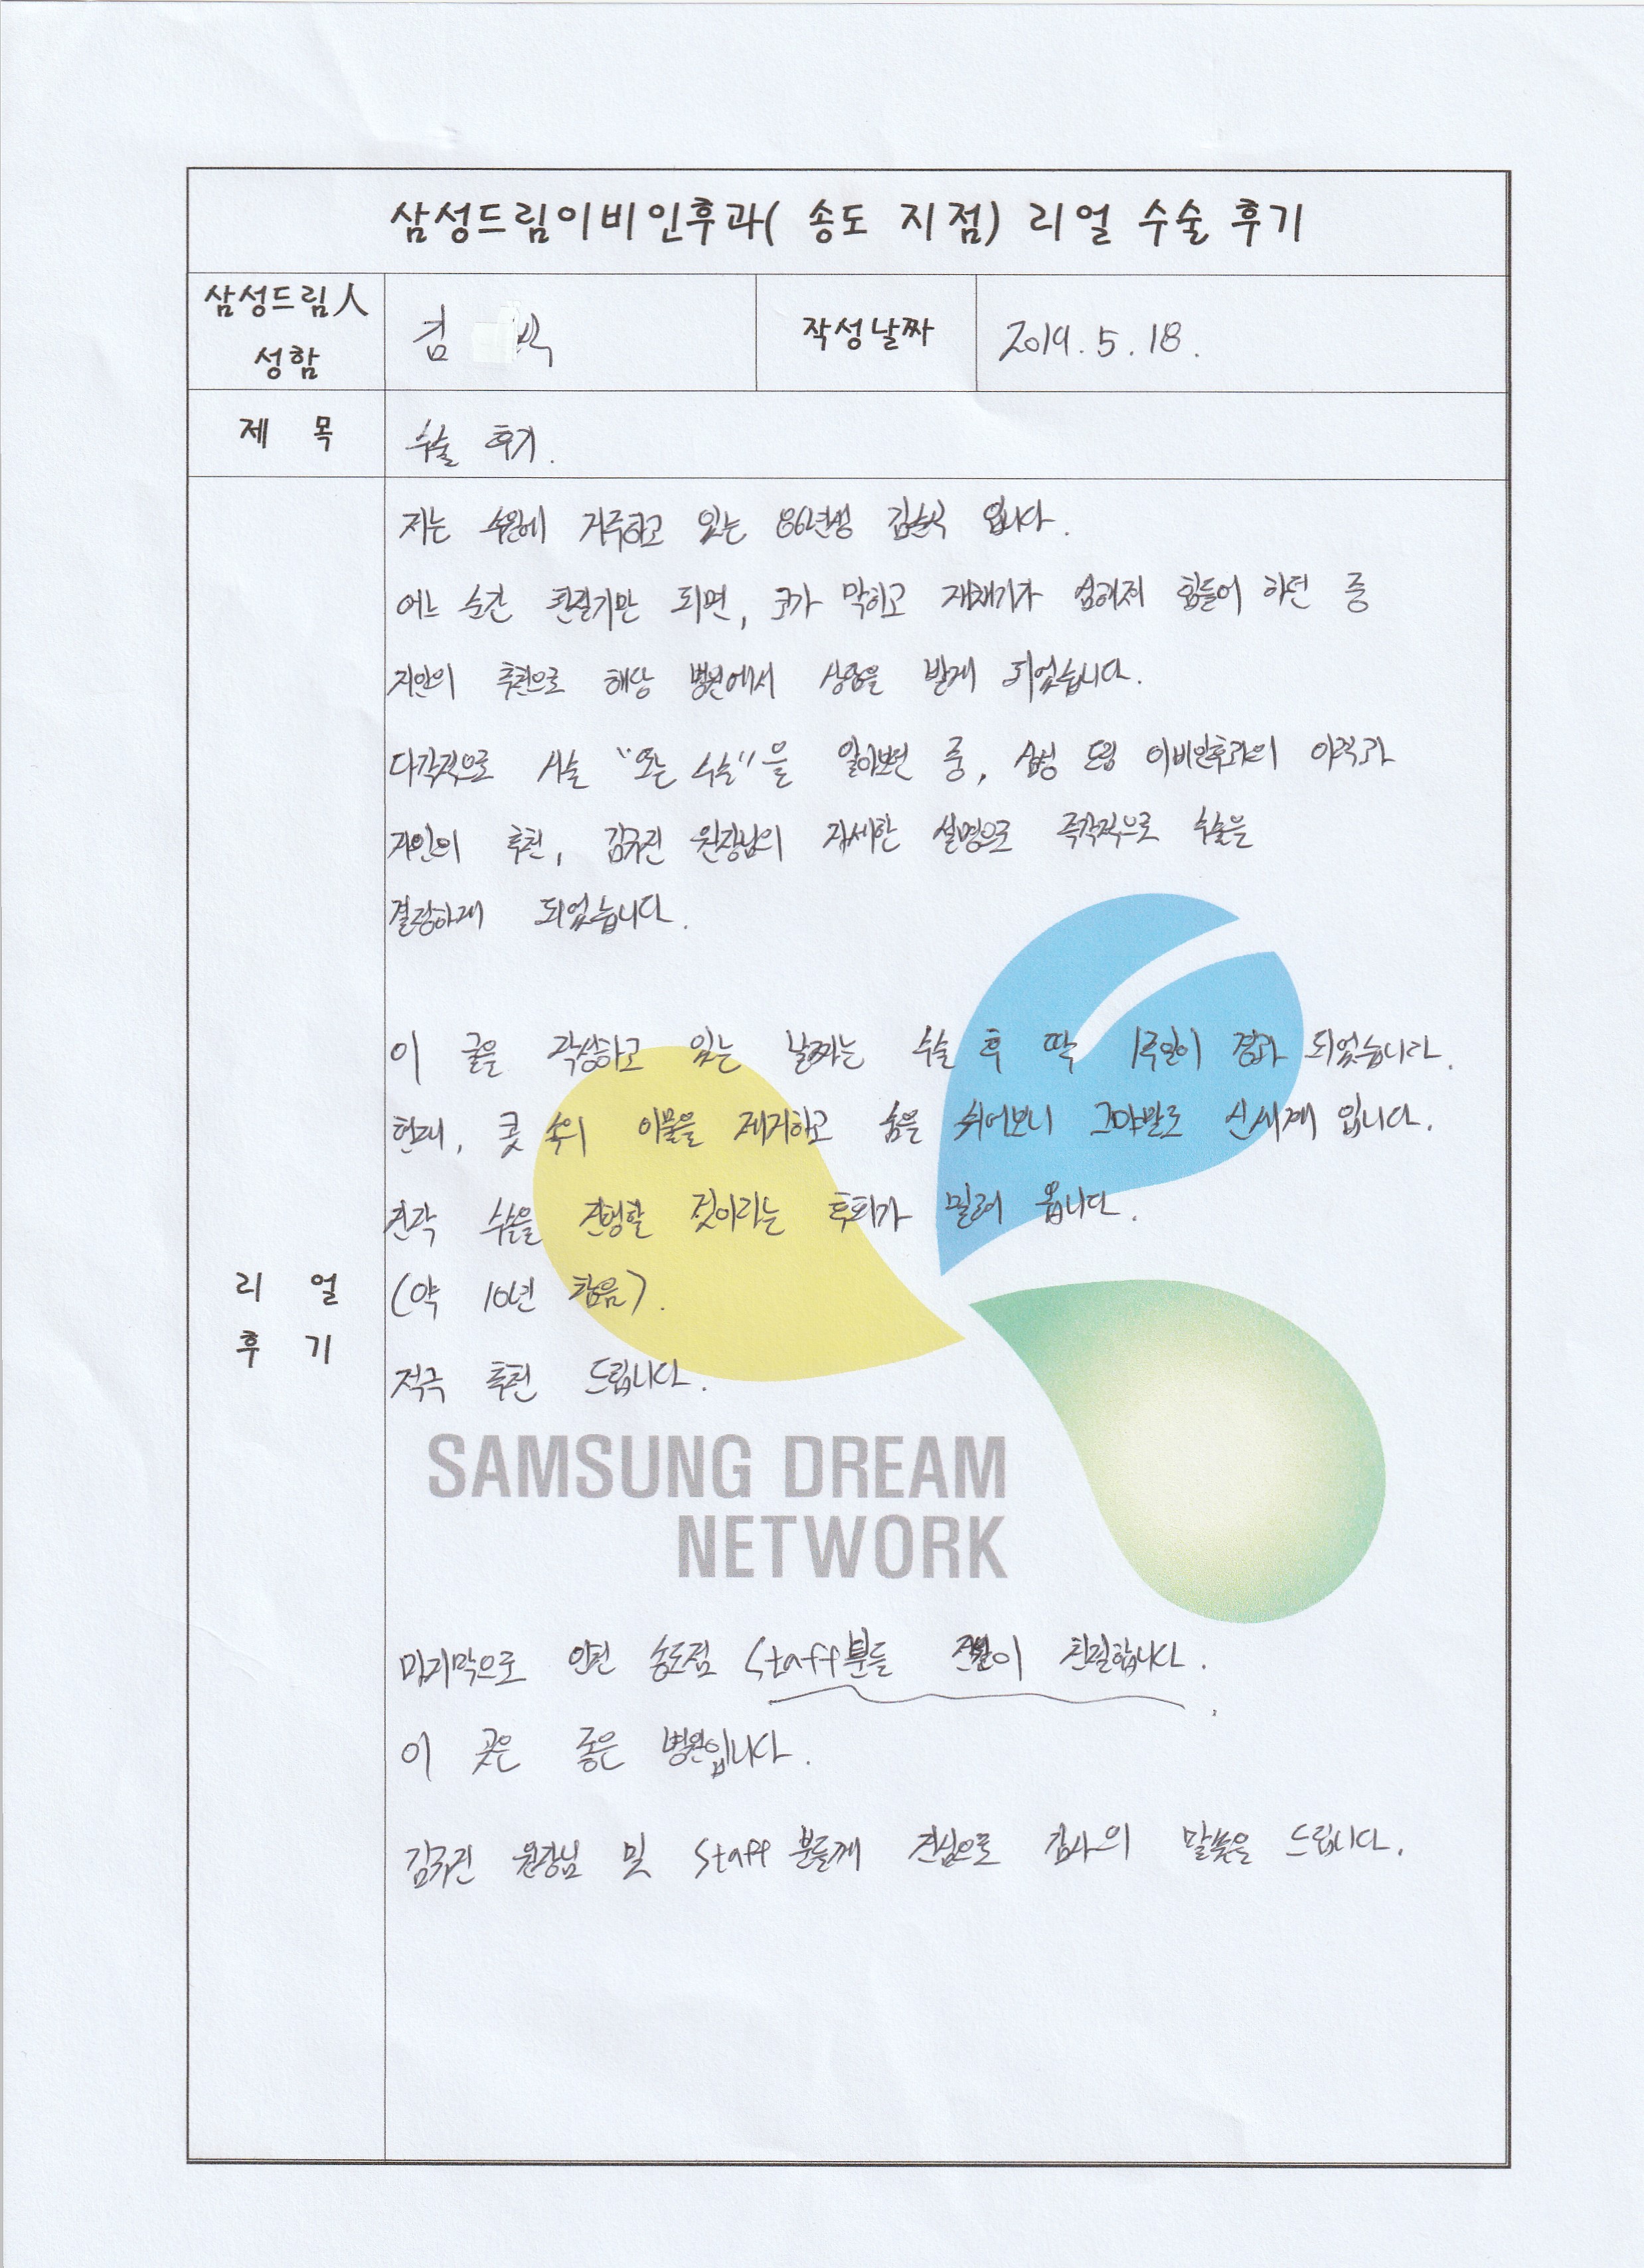 삼성드림이비인후과( 송도 지점) 리얼 수술 후기
삼성드림人
성함
김
작성날짜
2019. 5. 18.
제 목
수술 후기.
리 얼
후 기
저는 수원에 거주하고 있는 86년생 입니다.
어느 순간 환절기만 되면, 코가 막히고 재채기가 심해져 힘들어 하던 중
지인의 추천으로 해당 병원에서 상담을 받게 되었습니다.
다각적으로 시술 "또는 수술"을 알아보던 중, 삼성 드림 이비인후과의 이력과
지인의 추천, 김규진 원장님의 자세한 설명으로 즉각적으로 수술을
결정하게 되었습니다.
이 글을 작성하고 있는 날짜는 수술 후 딱 1주일이 경과 되었습니다.
현재, 콧 속의 이물을 제거하고 숨을 쉬어보니 그야말로 신세계 입니다.
진작 수술을 진행할 것이라는 후회가 밀려 옵니다.
(약 10년 참음).
적극 추천 드립니다.
SAMSUNG DREAM
NETWORK
마지막으로 인천 송도점 Staff분들 친절합니다.
이 곳은 좋은 병원입니다.
김규진 원장님 및 Staff 분들께 진심으로 감사의 말씀을 드립니다.